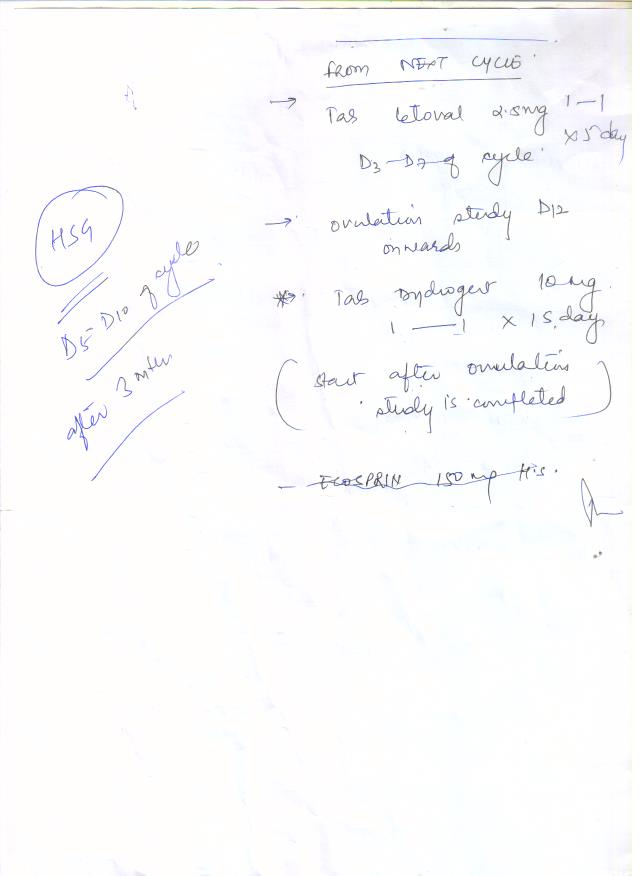 FROM NEXT CYCLE
→ Tab letoval 2.5mg 1—1
x 5 day
D3—D7 of cycle
→ ovulation study D12
onwards
Tab Dydrogest 10 mg
1 — 1 x 15 days
(start after ovulation
study is completed)
- ECOSPRIN 150 mg H.S.
HSG
D5-D10 of cycle
after 3 mths